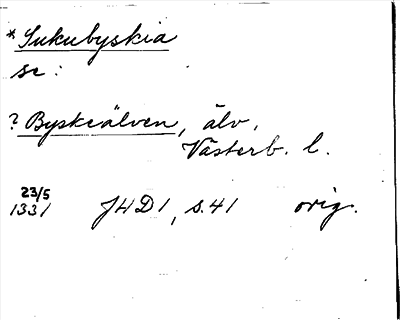 *Sukubyskia
se:
? Byskeälven, älv,
Västerb. l.
23/5
1331 JHD1, s.41 orig.